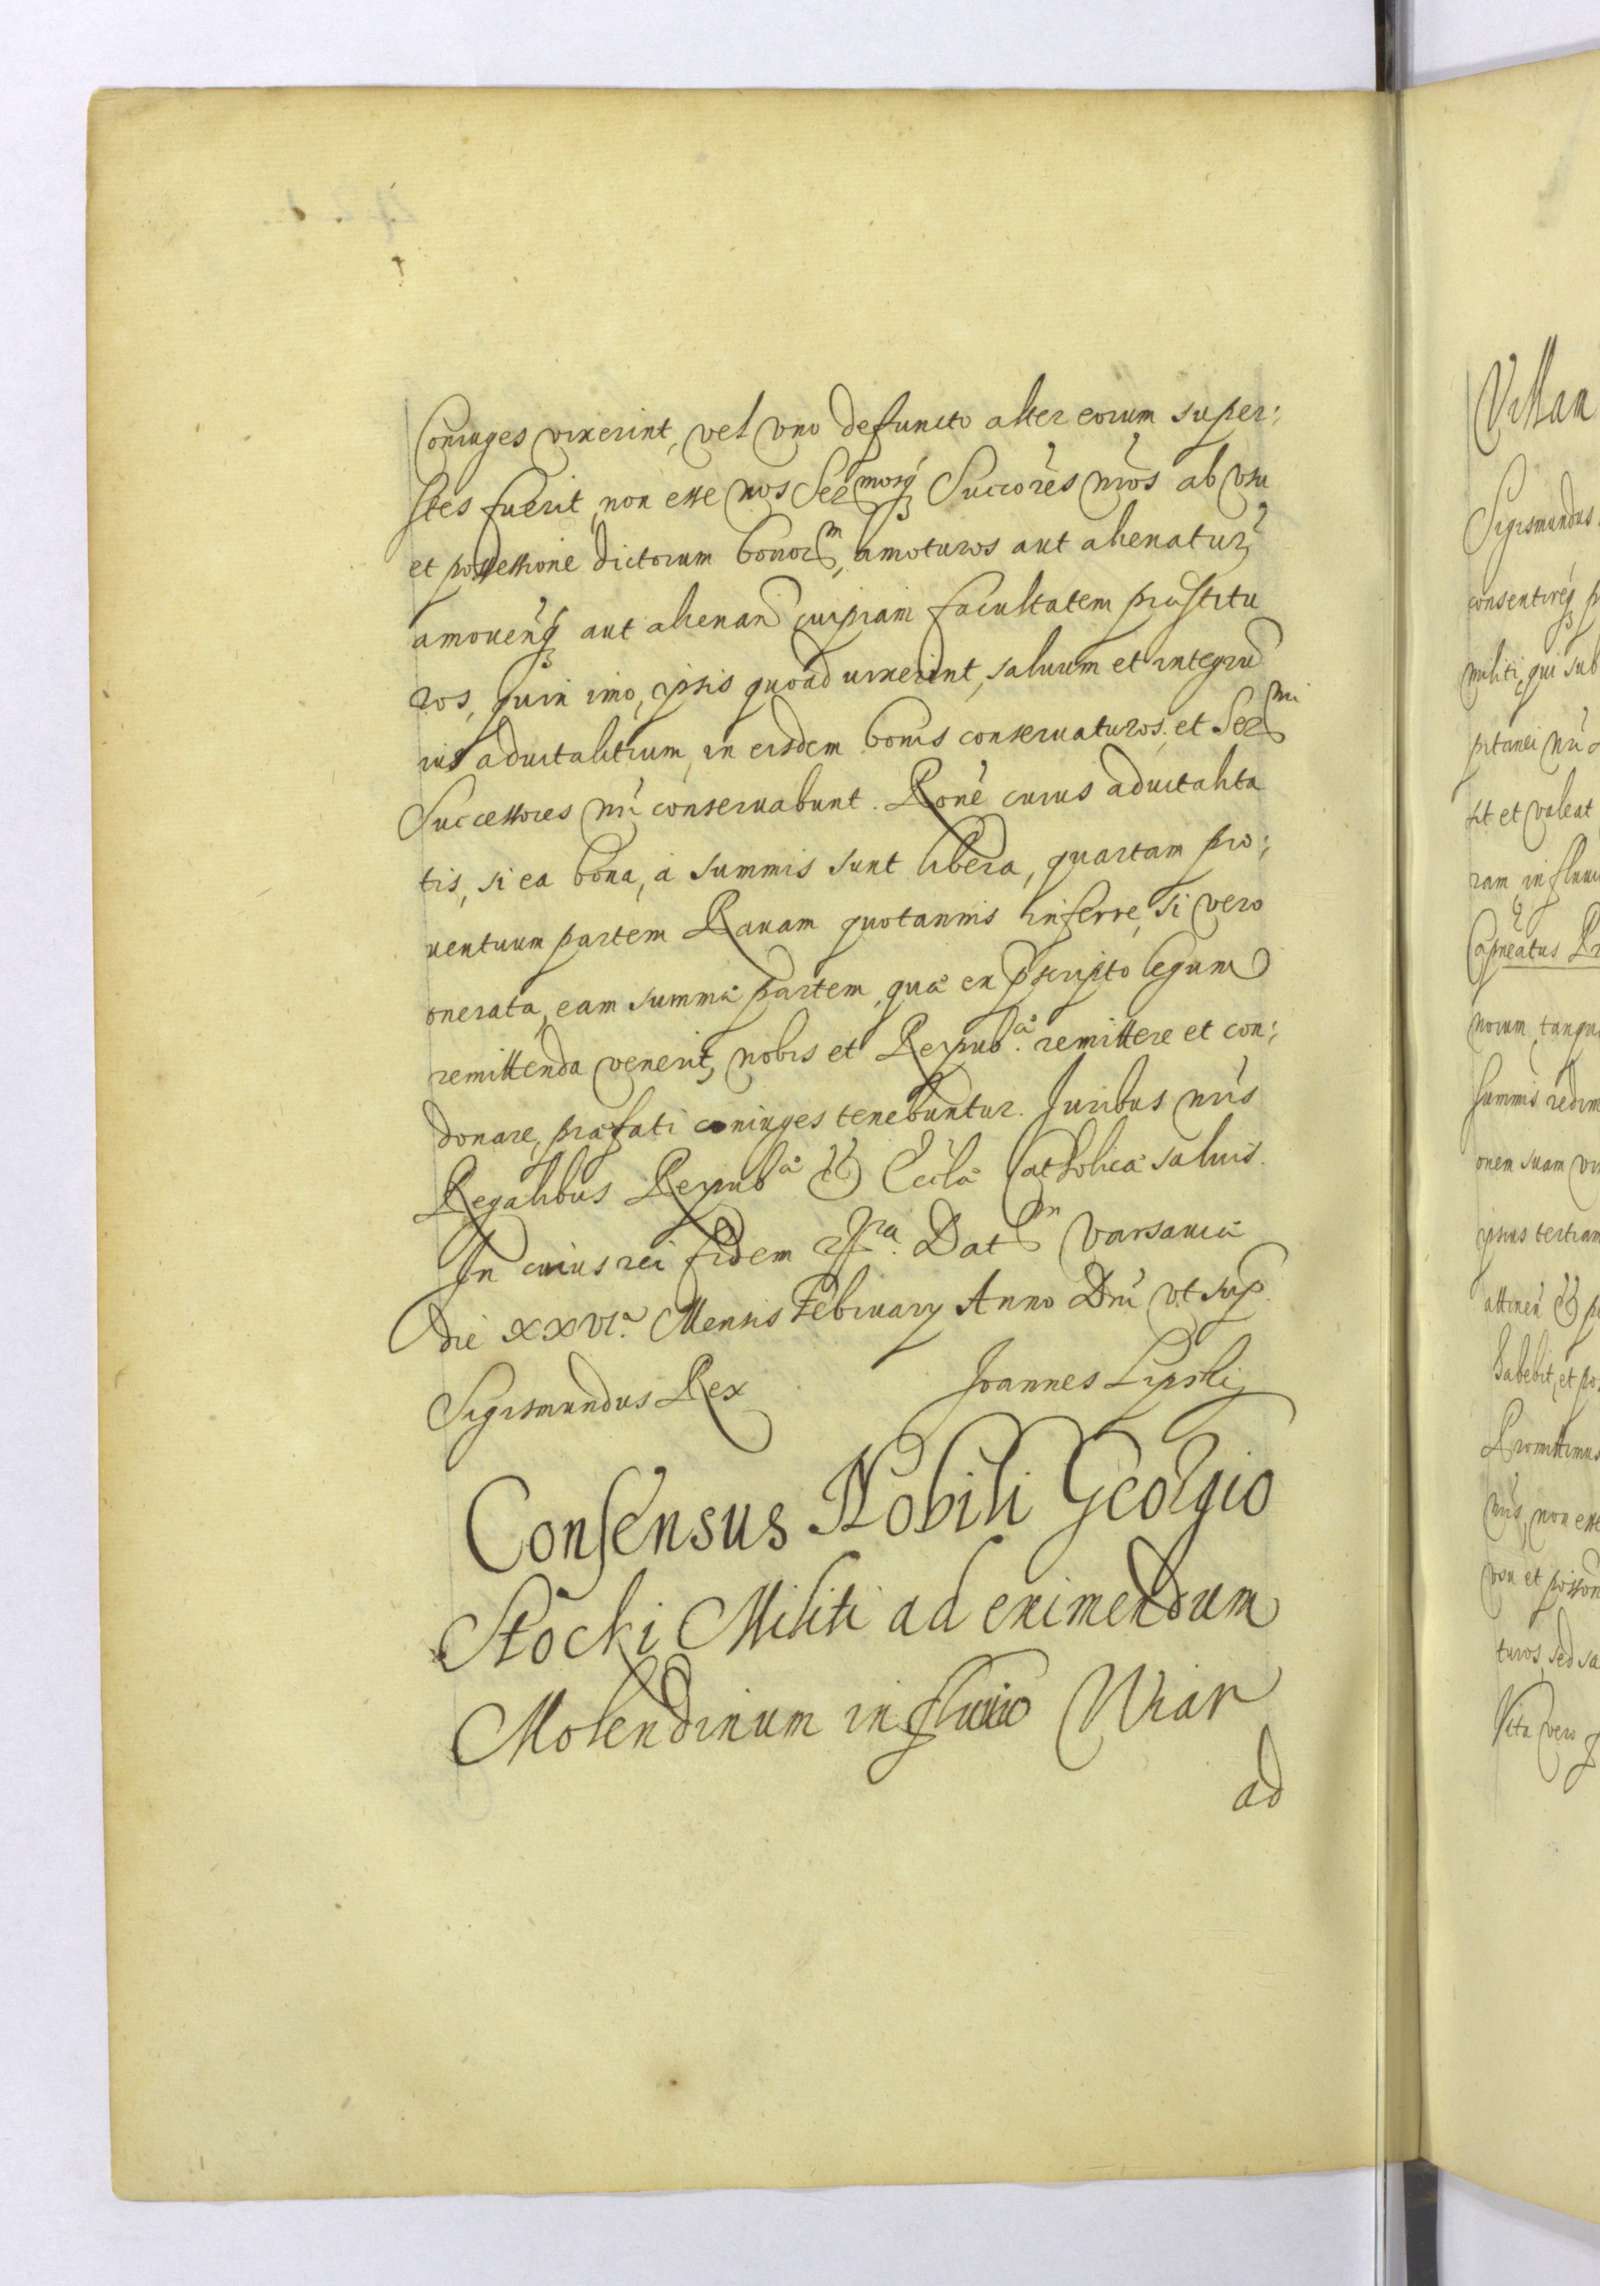 Coniuges vixerint, vel vno defuncto alter eorum super:
stes fuerit, non esse nos Ser mosq Succores nros ab vsu
et possessione dictorum bonor m, amoturos aut alienatur
amouen q aut alienan cuipiam facultatem præstitu
ros, quin imo, ipsis quoad vixerint, saluum et integru
ius aduitalitium, in eisdem bonis conseruaturos, et Ser mi
Successores nri conseruabunt. Rone cuius aduitalita
tis, si ea bona, á summis sunt libera, quartam pro:
uentuum partem Rauam quotannis inferre, si vero
onerata, eam summæ partem, quæ ex pscripto legum
remittenda venerit, nobis et Reipub æ. remittere et con:
donare, præfati coniuges tenebuntur. Juribus nris
Regalibus Reipub æ & Ecclæ Catholicæ saluis.
In cuius rei fidem &ra. Dat m Varsauiæ
die XXVIa. Mensis February Anno Dni vt sup.
Sigismundus Rex Joannes Lipski
Consensus Nobili Georgio
Stocki Militi ad eximendum
Molendinum in fluuio Wiar
ad
Villan
Sigismundus
consentireq p
militi, qui sub
pitanei nri
sit et valeat
ram, in fluui
norum, tanqu
summis redim
onem suam vi
ipsius tertiam
attinen & p
habebit, et po
Promittimus
nris, non esse
vsu et possion
turos, sed sa
Vita vero